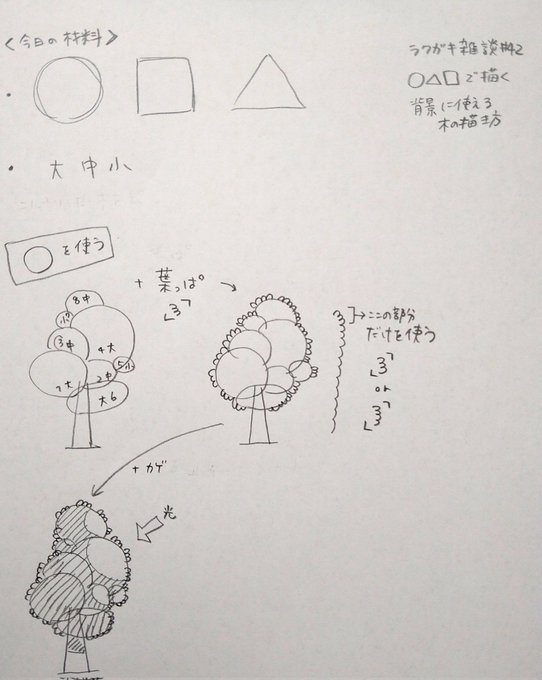 <今日の材料>
ラクガキ雑談#42
○△□で描く
背景に使える
木の描き方
・大 中 小
○を使う
+葉っぱ
8中
小7
3中
4大
5小
2中
1大
大6
→ここの部分
だけを使う
「3」
or
「3」
+カゲ
光